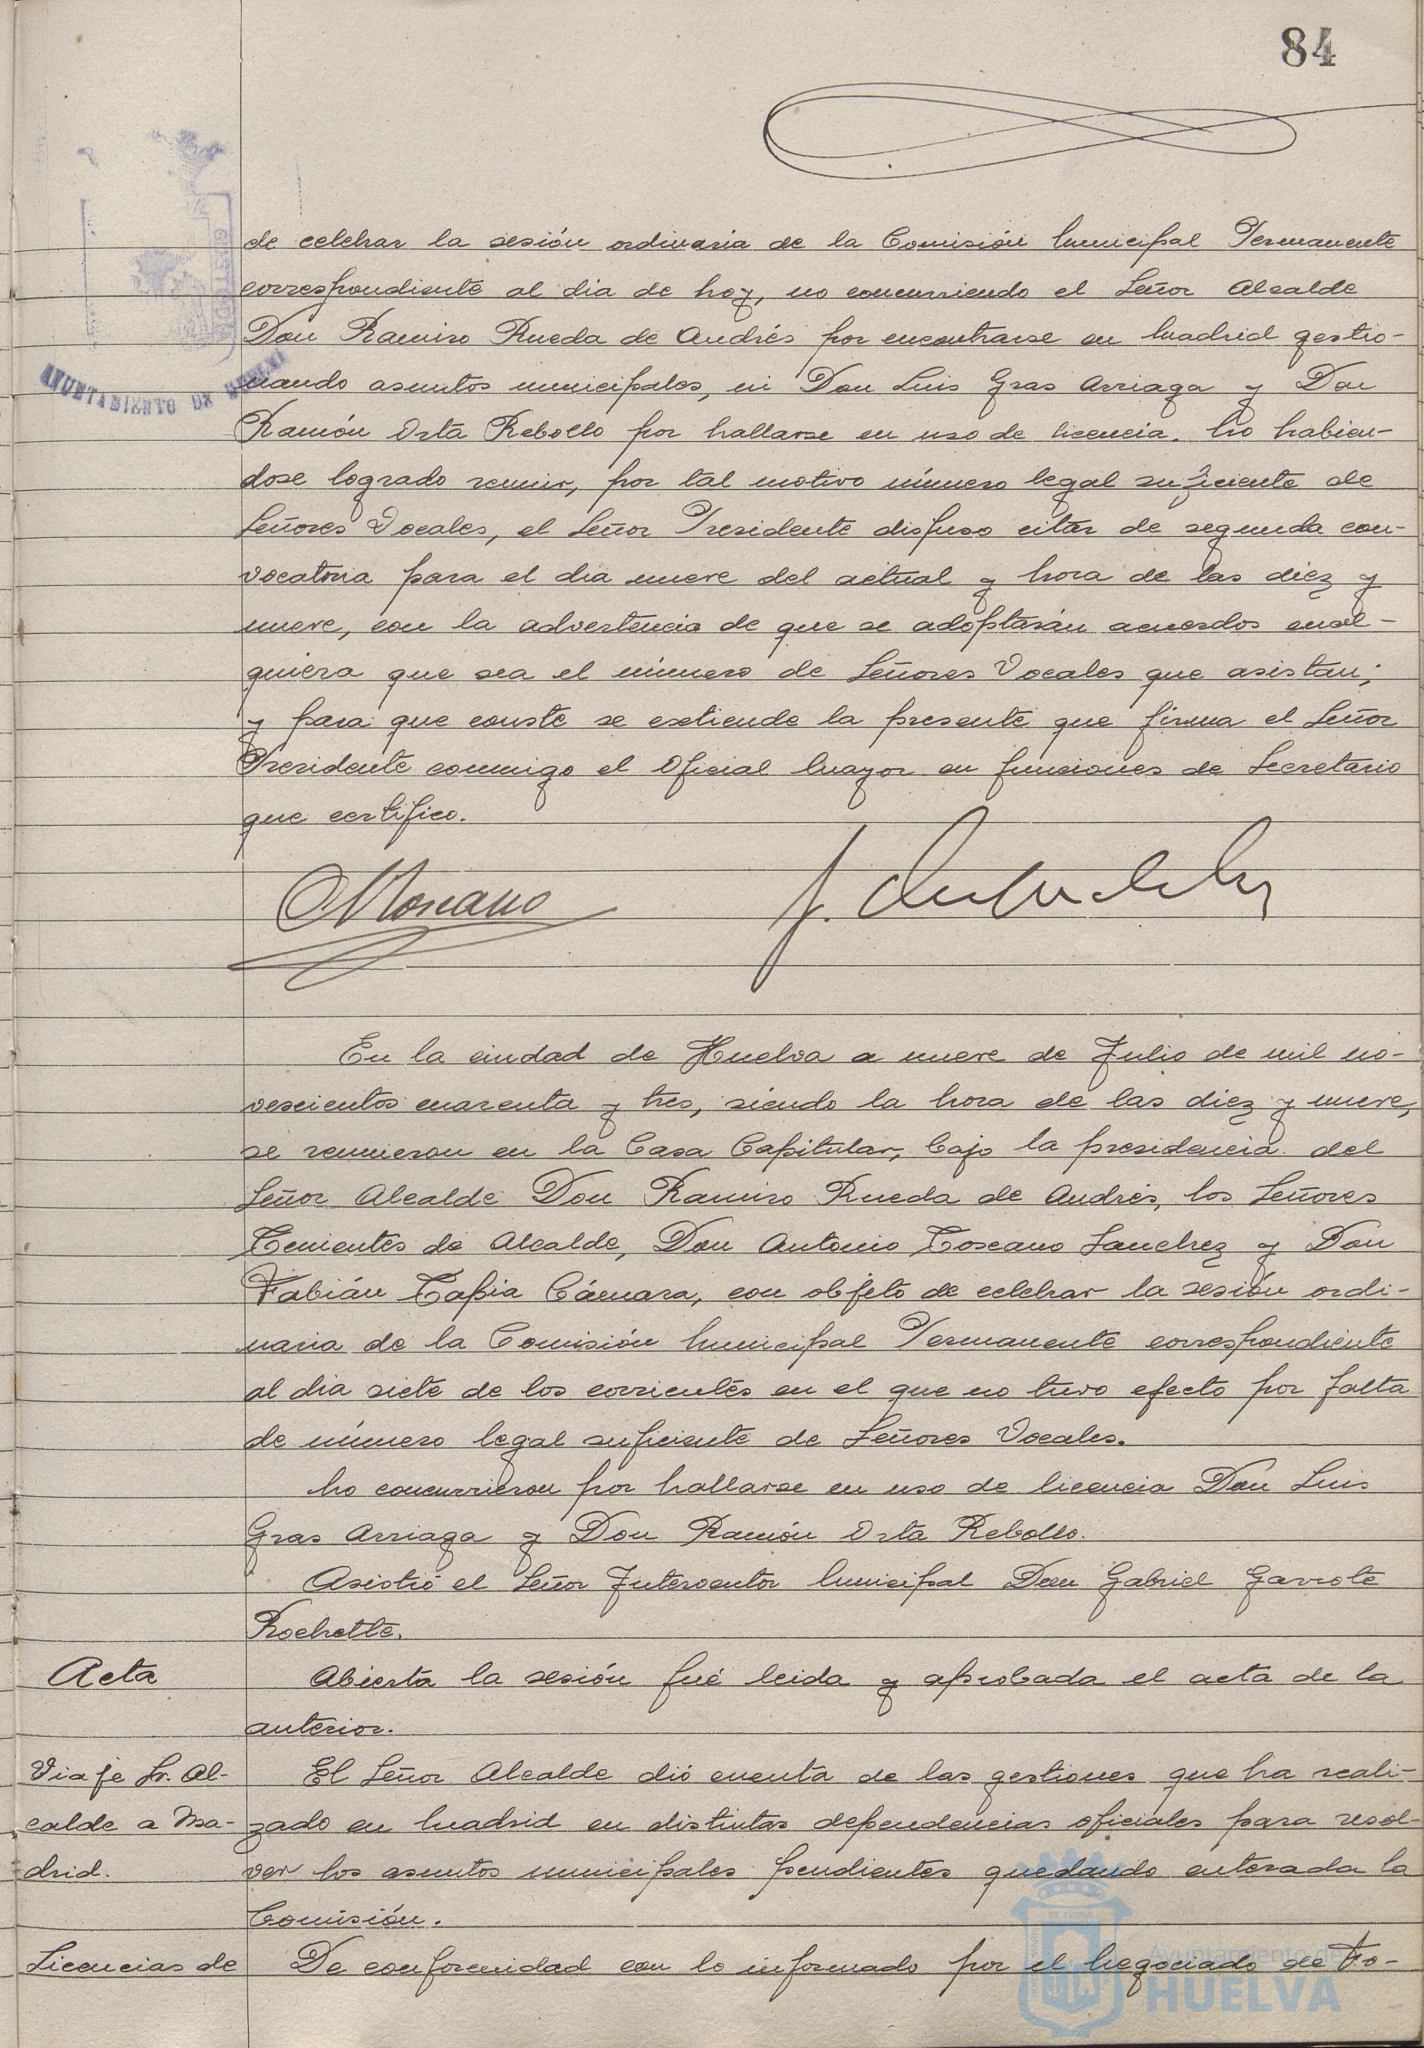 84
de celebrar la sesión ordinaria de la Comisión Municipal Permanente
correspondiente al dia de hoy, no concurriendo el Señor Alcalde
Don Ramiro Rueda de Andrés por encontrarse en Madrid gestio-
nando asuntos municipales, ni Don Luis Gras Arriaga y Don
AYUNTAMIENTO DE HUELVA
Ramón Orta Rebollo por hallarse en uso de licencia. No habien-
dose logrado reunir, por tal motivo número legal suficiente de
Señores Vocales, el Señor Presidente dispuso citar de segunda con-
vocatoria para el dia nueve del actual y hora de las diez y
nueve, con la advertencia de que se adoptarán acuerdos cual-
quiera que sea el número de Señores Vocales que asistan;
y para que conste se extiende la presente que firma el Señor
Presidente conmigo el Oficial Mayor en funciones de Secretario
que certifico.
Toscano
En la ciudad de Huelva a nueve de Julio de mil no-
vescientos cuarenta y tres, siendo la hora de las diez y nueve,
se reunieron en la Casa Capitular, bajo la presidencia del
Señor Alcalde Don Ramiro Rueda de Andrés, los Señores
Tenientes de Alcalde, Don Antonio Toscano Sanchez y Don
Fabián Tapia Cámara, con objeto de celebrar la sesión ordi-
naria de la Comisión Municipal Permanente correspondiente
al dia siete de los corrientes en el que no tuvo efecto por falta
de número legal suficiente de Señores Vocales.
No concurrieron por hallarse en uso de licencia Don Luis
Gras Arriaga y Don Ramón Orta Rebollo.
Asistió el Señor Interventor Municipal Don Gabriel Garrote
Rochette.
Acta
Abierta la sesión fué leida y aprobada el acta de la
anterior.
Viaje Sr. Al-
calde a Ma-
drid.
El Señor Alcalde dió cuenta de las gestiones que ha reali-
zado en Madrid en distintas dependencias oficiales para resol-
ver los asuntos municipales pendientes quedando enterada la
Comisión.
Licencias de
De conformidad con lo informado por el Negociado de Fo-
Ayuntamiento de
HUELVA